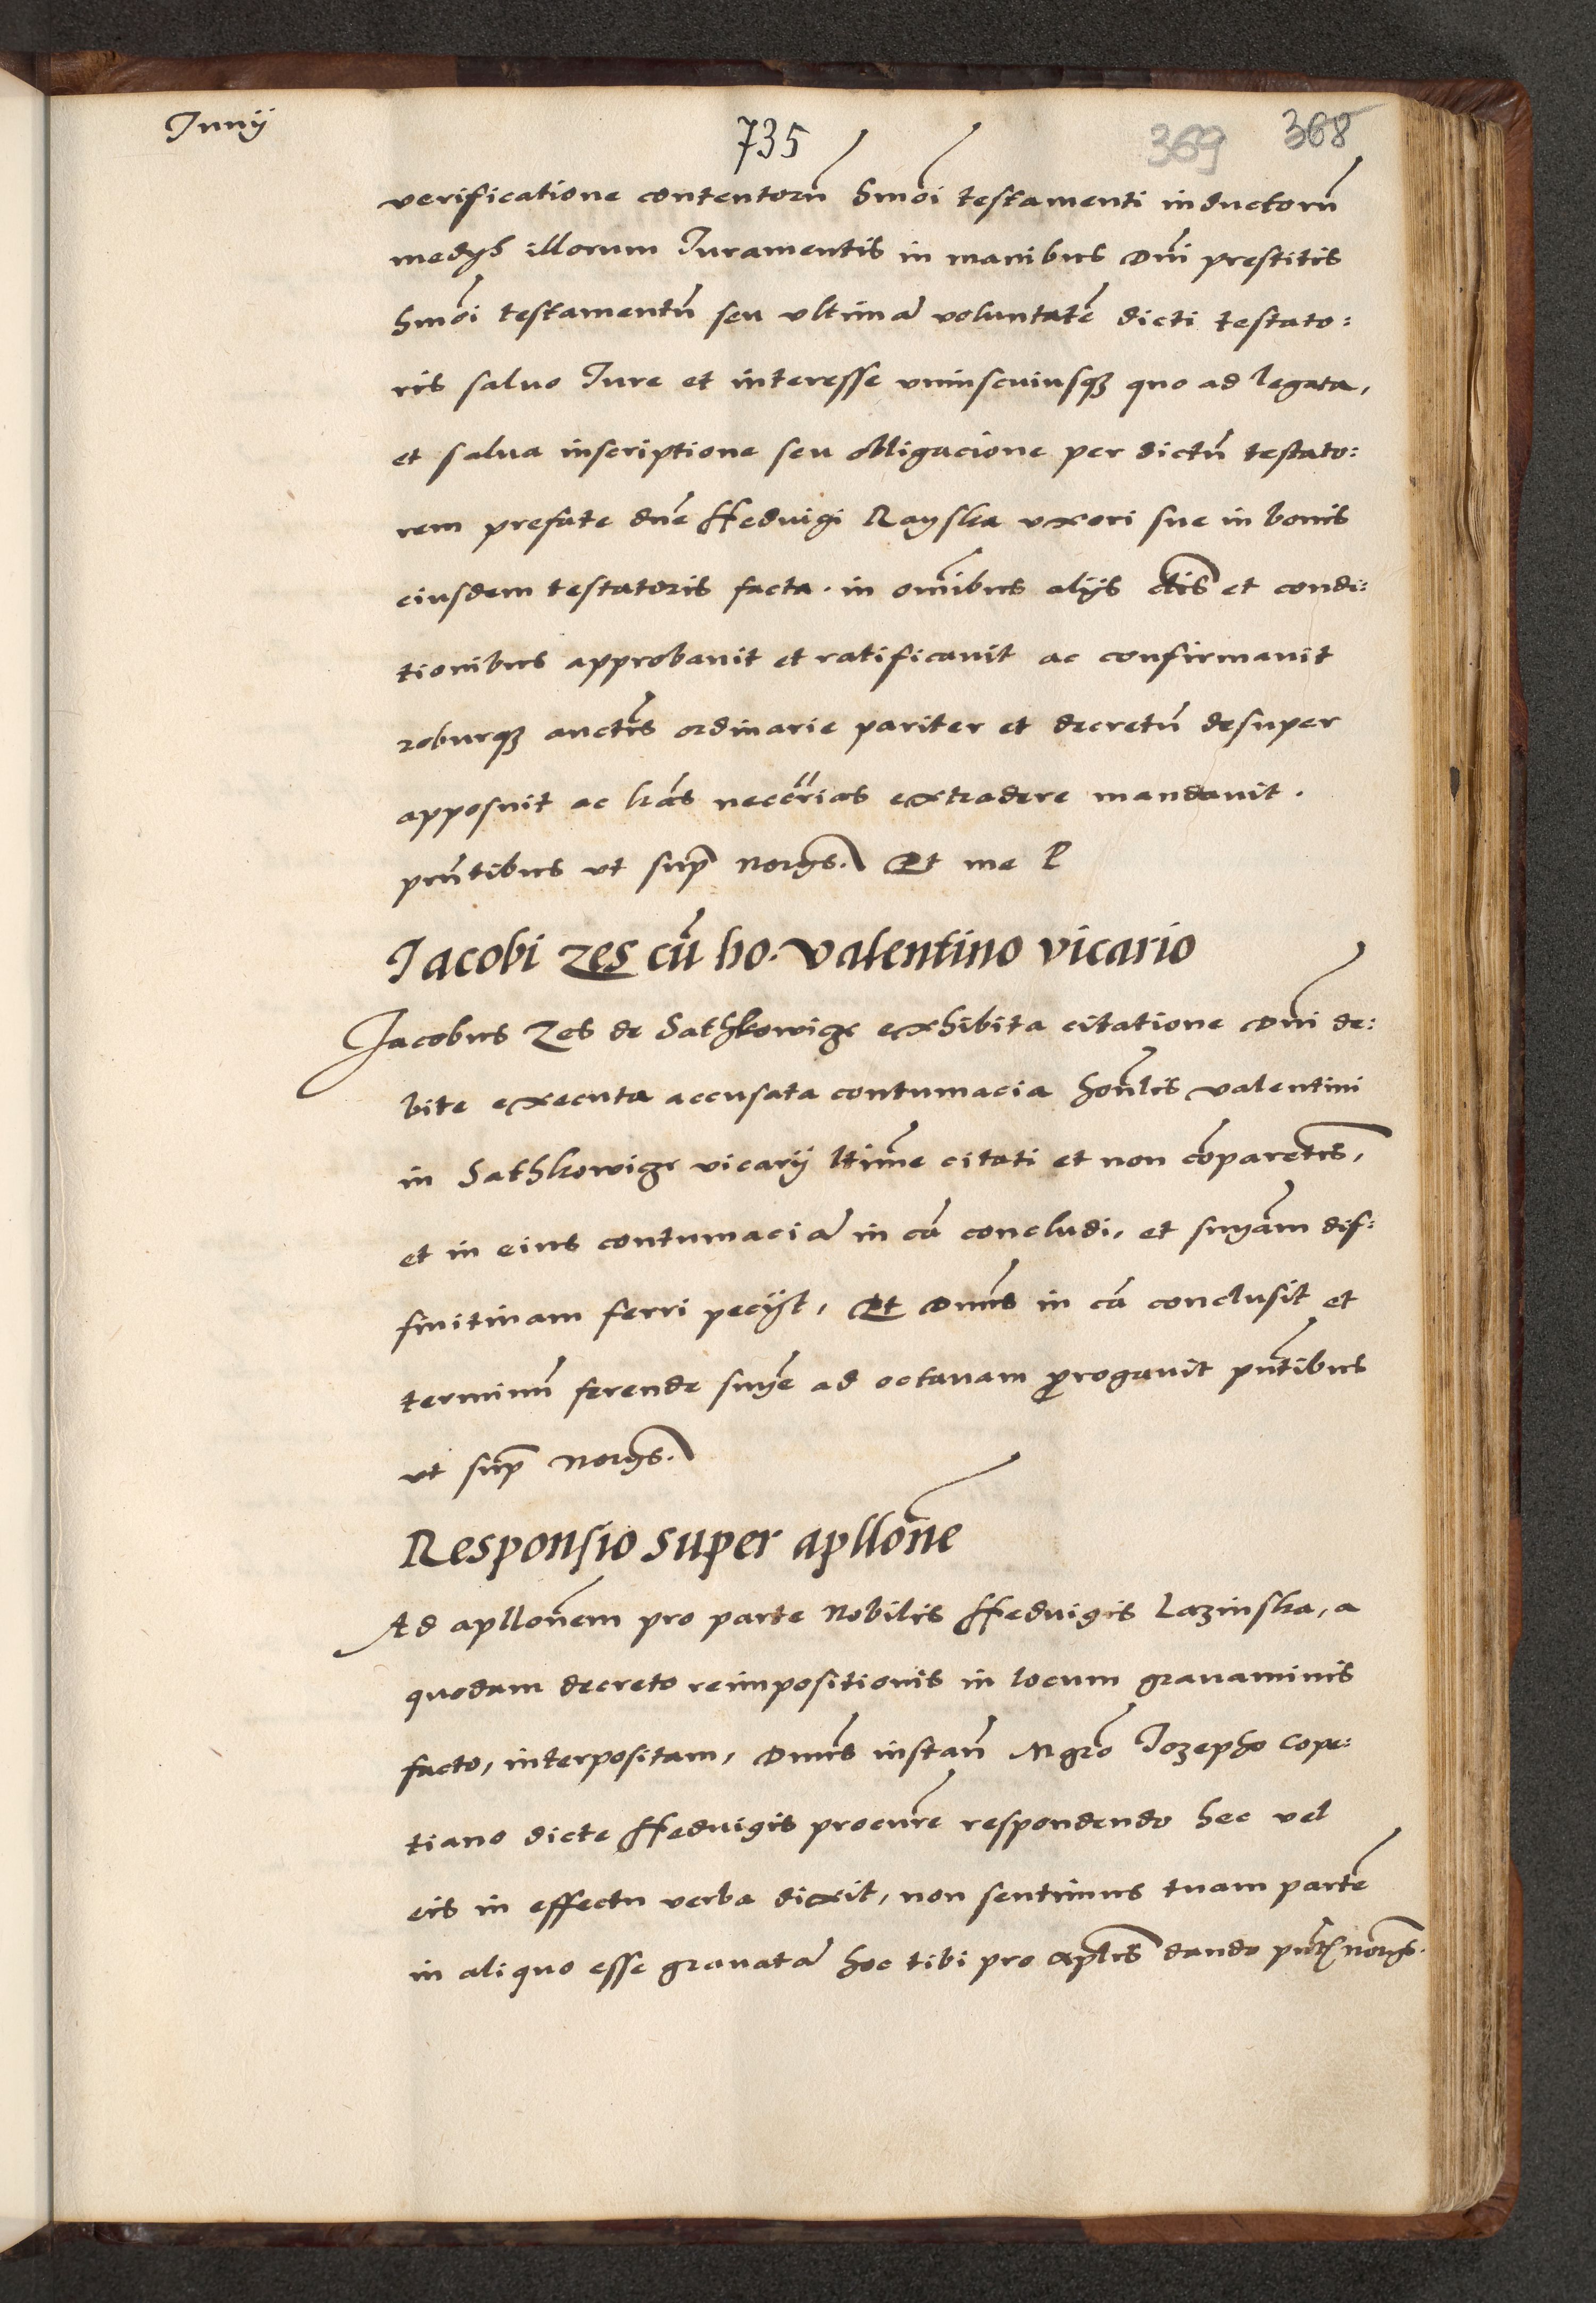 Junij
735
369 368
verificatione contentorũ hmõi testamenti inductorũ
medijs illorum Iuramentis in manibus Dñi prestitis
hmõi testamentũ seu ultimã voluntatẽ dicti testato:
ris saluo Iure et interesse uniuscuiusqʒ quo ad legata,
et salua inscriptione seu obligacione per dictũ testato:
rem prefate dñe Hedvigi Rayska uxori sue in bonis
eiusdem testatoris facta. in omĩbus alijs cl̃is et condi:
tionibus approbauit et ratificauit ac confirmauit
roburqʒ auctĩs ordinarie pariter et decretũ desuper
apposuit ac lr̃as necc̃rias extradere mandauit.
pñtibus ut sup̃ norijs. Et me P
Jacobi Zes cũ ho. Valentino vicario
Jacobus Zes de Sathkowicze exhibita citatione Dñi de:
bite executa accusata contumacia hoñlis Valentini
in Sathkowicze vicarij lt̃ime citati et non cõparentis,
et in eius contumaciã in cã concludi, et sniãm dif:
finitiuam ferri pecijt, Et Dñus in cã conclusit et
terminũ ferende sniẽ ad octauam prorogauit pñtibus
ut sup̃ norijs.
Responsio super apllõne
Ad apllonẽm pro parte Nobilis Hedvigis Lazinska, a
quodam decreto reimpositionis in locum grauaminis
facto, interpositam, Dñus instañ Mgrõ Jozepho Cope:
tiano dicte Hedvigis procurẽ respondendo hec vel
eis in effectu verba dixit, non sentimus tuam partẽ
in aliquo esse grauatã hoc tibi pro aplĩs dando pñtĩ norijs.